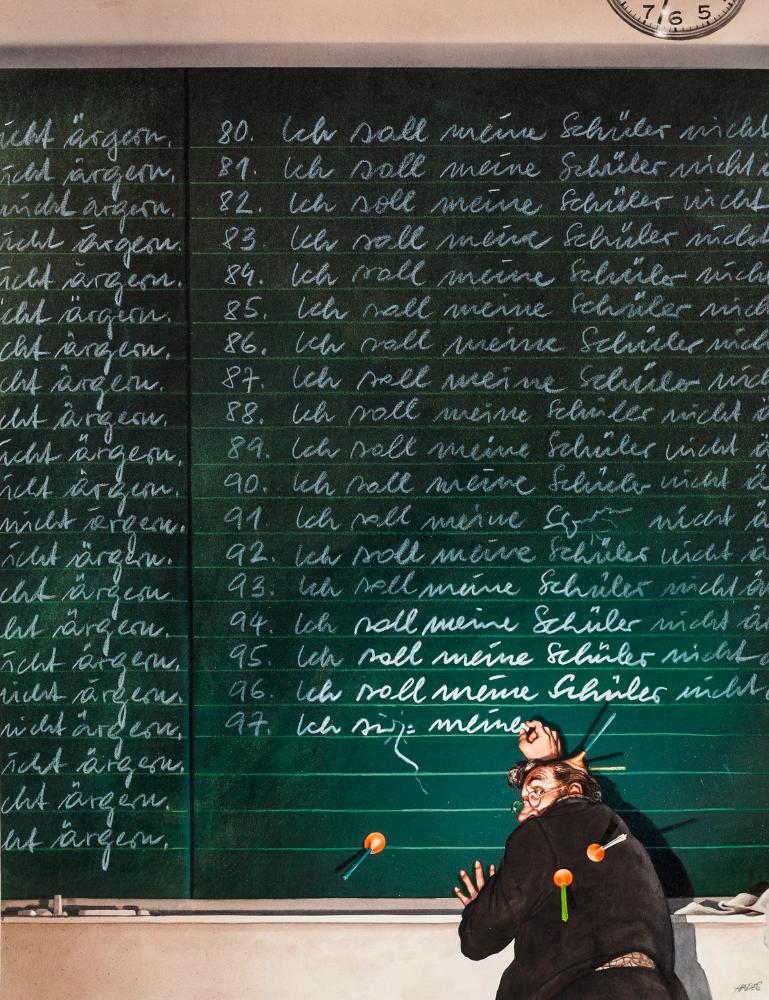 7 6 5
icht ärgern.
icht ärgern.
nicht ärgern.
nicht ärgern.
icht ärgern.
cht ärgern.
cht ärgern.
cht ärgern.
cht ärgern.
icht ärgern.
icht ärgern.
nicht ärgern.
icht ärgern.
cht ärgern.
ht ärgern.
icht ärgern.
nicht ärgern.
nicht ärgern.
icht ärgern.
cht ärgern.
ht ärgern.
80. Ich soll meine Schüler nicht
81. Ich soll meine Schüler nicht ä
82. Ich soll meine Schüler nicht
83. Ich soll meine Schüler nicht
84. Ich soll meine Schüler nich
85. Ich soll meine Schüler nich
86. Ich soll meine Schüler nich
87. Ich soll meine Schüler nich
88. Ich soll meine Schüler nicht ä
89. Ich soll meine Schüler nicht ä
90. Ich soll meine Schüler nicht ä
91. Ich soll meine nicht ä
92. Ich soll meine Schüler nicht ä
93. Ich soll meine Schüler nicht än
94. Ich soll meine Schüler nicht är
95. Ich soll meine Schüler nicht
96. Ich soll meine Schüler nicht
97. Ich meine
HADES